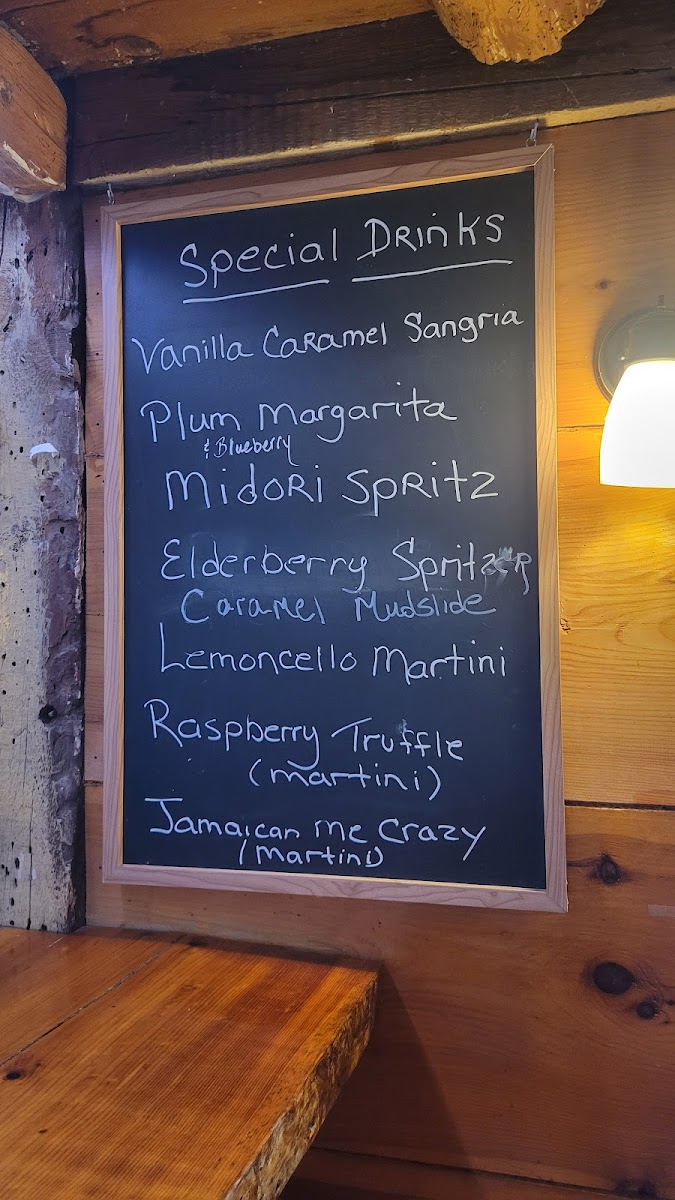 Special Drinks
Vanilla Caramel Sangria
Plum Margarita
& Blueberry
Midori Spritz
Elderberry Spritzer
Caramel Mudslide
Lemoncello Martini
Raspberry Truffle
(martini)
Jamaican me Crazy
(martini)